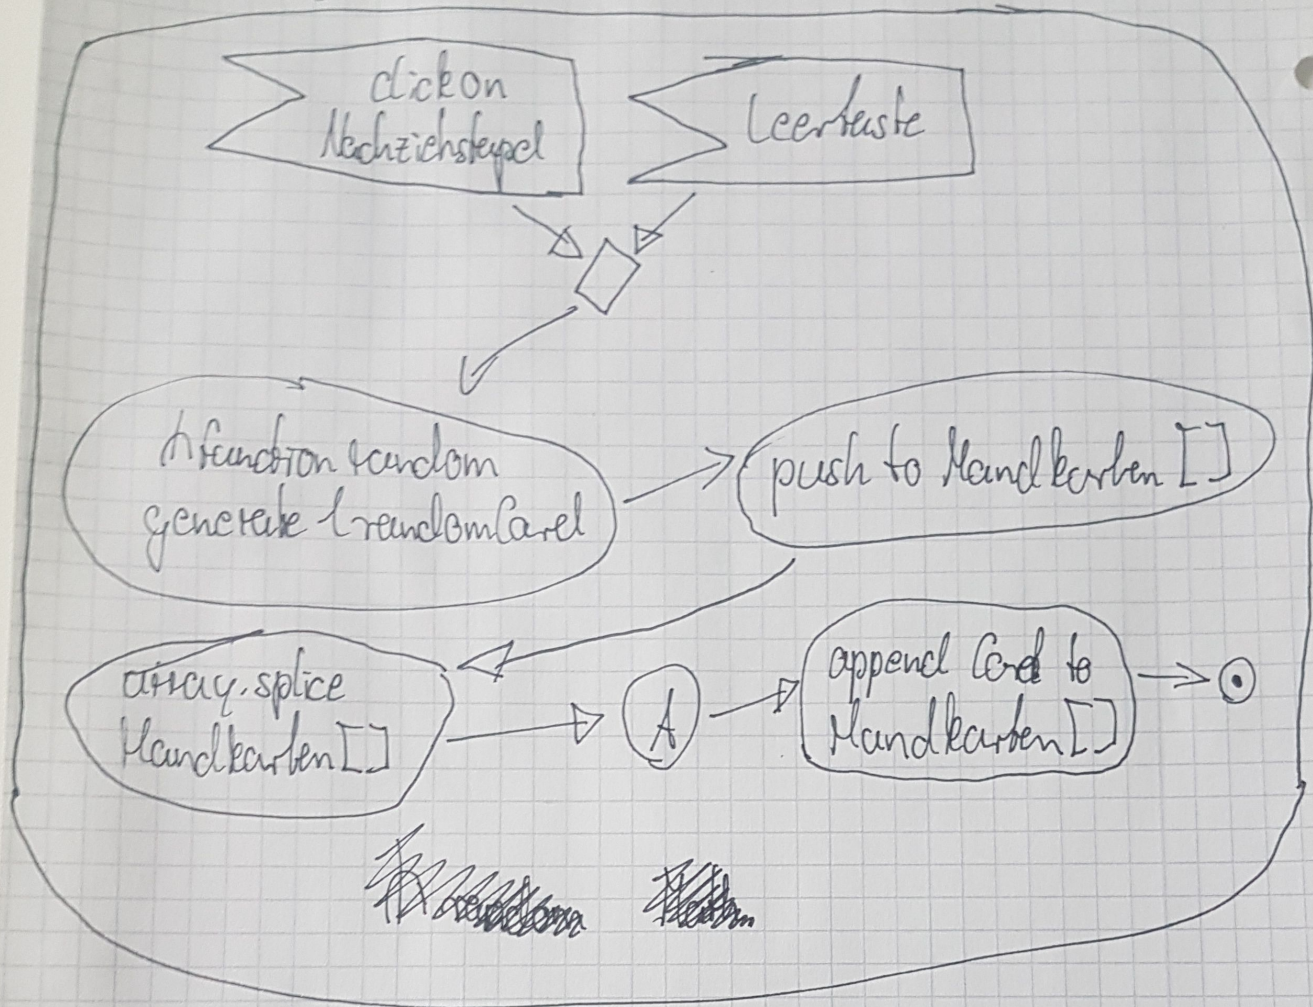 click on
Nachziehstapel
Leertaste
function random
generate 1 randomCard
push to Handkarten []
array.splice
Handkarten []
A
append Card to
Handkarten []